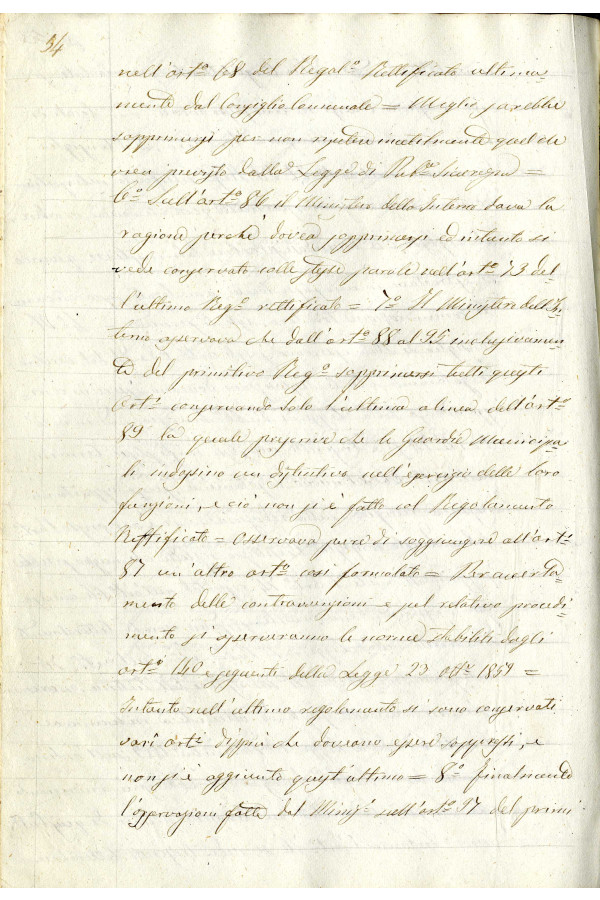 34
nell'artº 68 del Regolº Rettificato ultima=
mente dal Consiglio Comunale = Meglio sarebbe
sopprimersi per non ripetere inutilmente quel che
vien previsto dalla Legge di Pubca Sicurezza =
6º Sull'artº 86 il Ministero dello Interno dava la
ragione perchè dovea sopprimersi ed intanto si
vede conservato colle stesse parole nell'artº 73 del=
l'ultimo Regº rettificato = 7º Il Ministero dell'In=
terno osservava che dall'artº 88 al 95 inclusivamen=
te del primitivo Regº sopprimersi tutti questi
artⁱ conservando solo l'ultimo alinea dell'artº
89 la quale prescrive che le Guardie Municipa=
li indossino un distintivo nell'esercizio delle loro
funzioni, e ciò non si è fatto col Regolamento
Rettificato = Osservava pure di soggiungere all'artº
87 un'altro artº così formolato = Per accerta=
mento delle contravenzioni e pel relativo procedi=
mento si osserveranno le norme stabiliti dagli
artº 140 e seguenti della Legge 23 ottᵉ 1859 =
Intanto nell'ultimo regolamento si sono conservati
varî artⁱ dippiù che doveano essere soppressi, e
non si è aggiunto quest'ultimo = 8º Finalmente
l'osservazioni fatte dal Minisº sull'artº 97 del primi